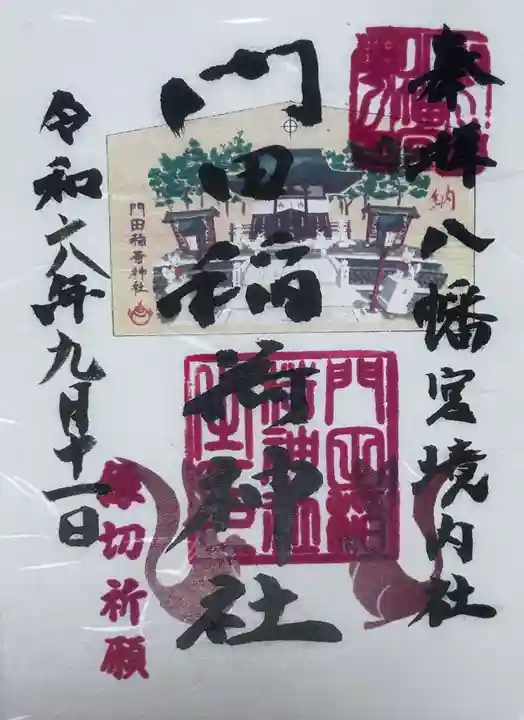 奉拝 八幡宮境内社
納
門田稲荷神社
門田稲荷神社
縁切祈願
令和六年九月十一日